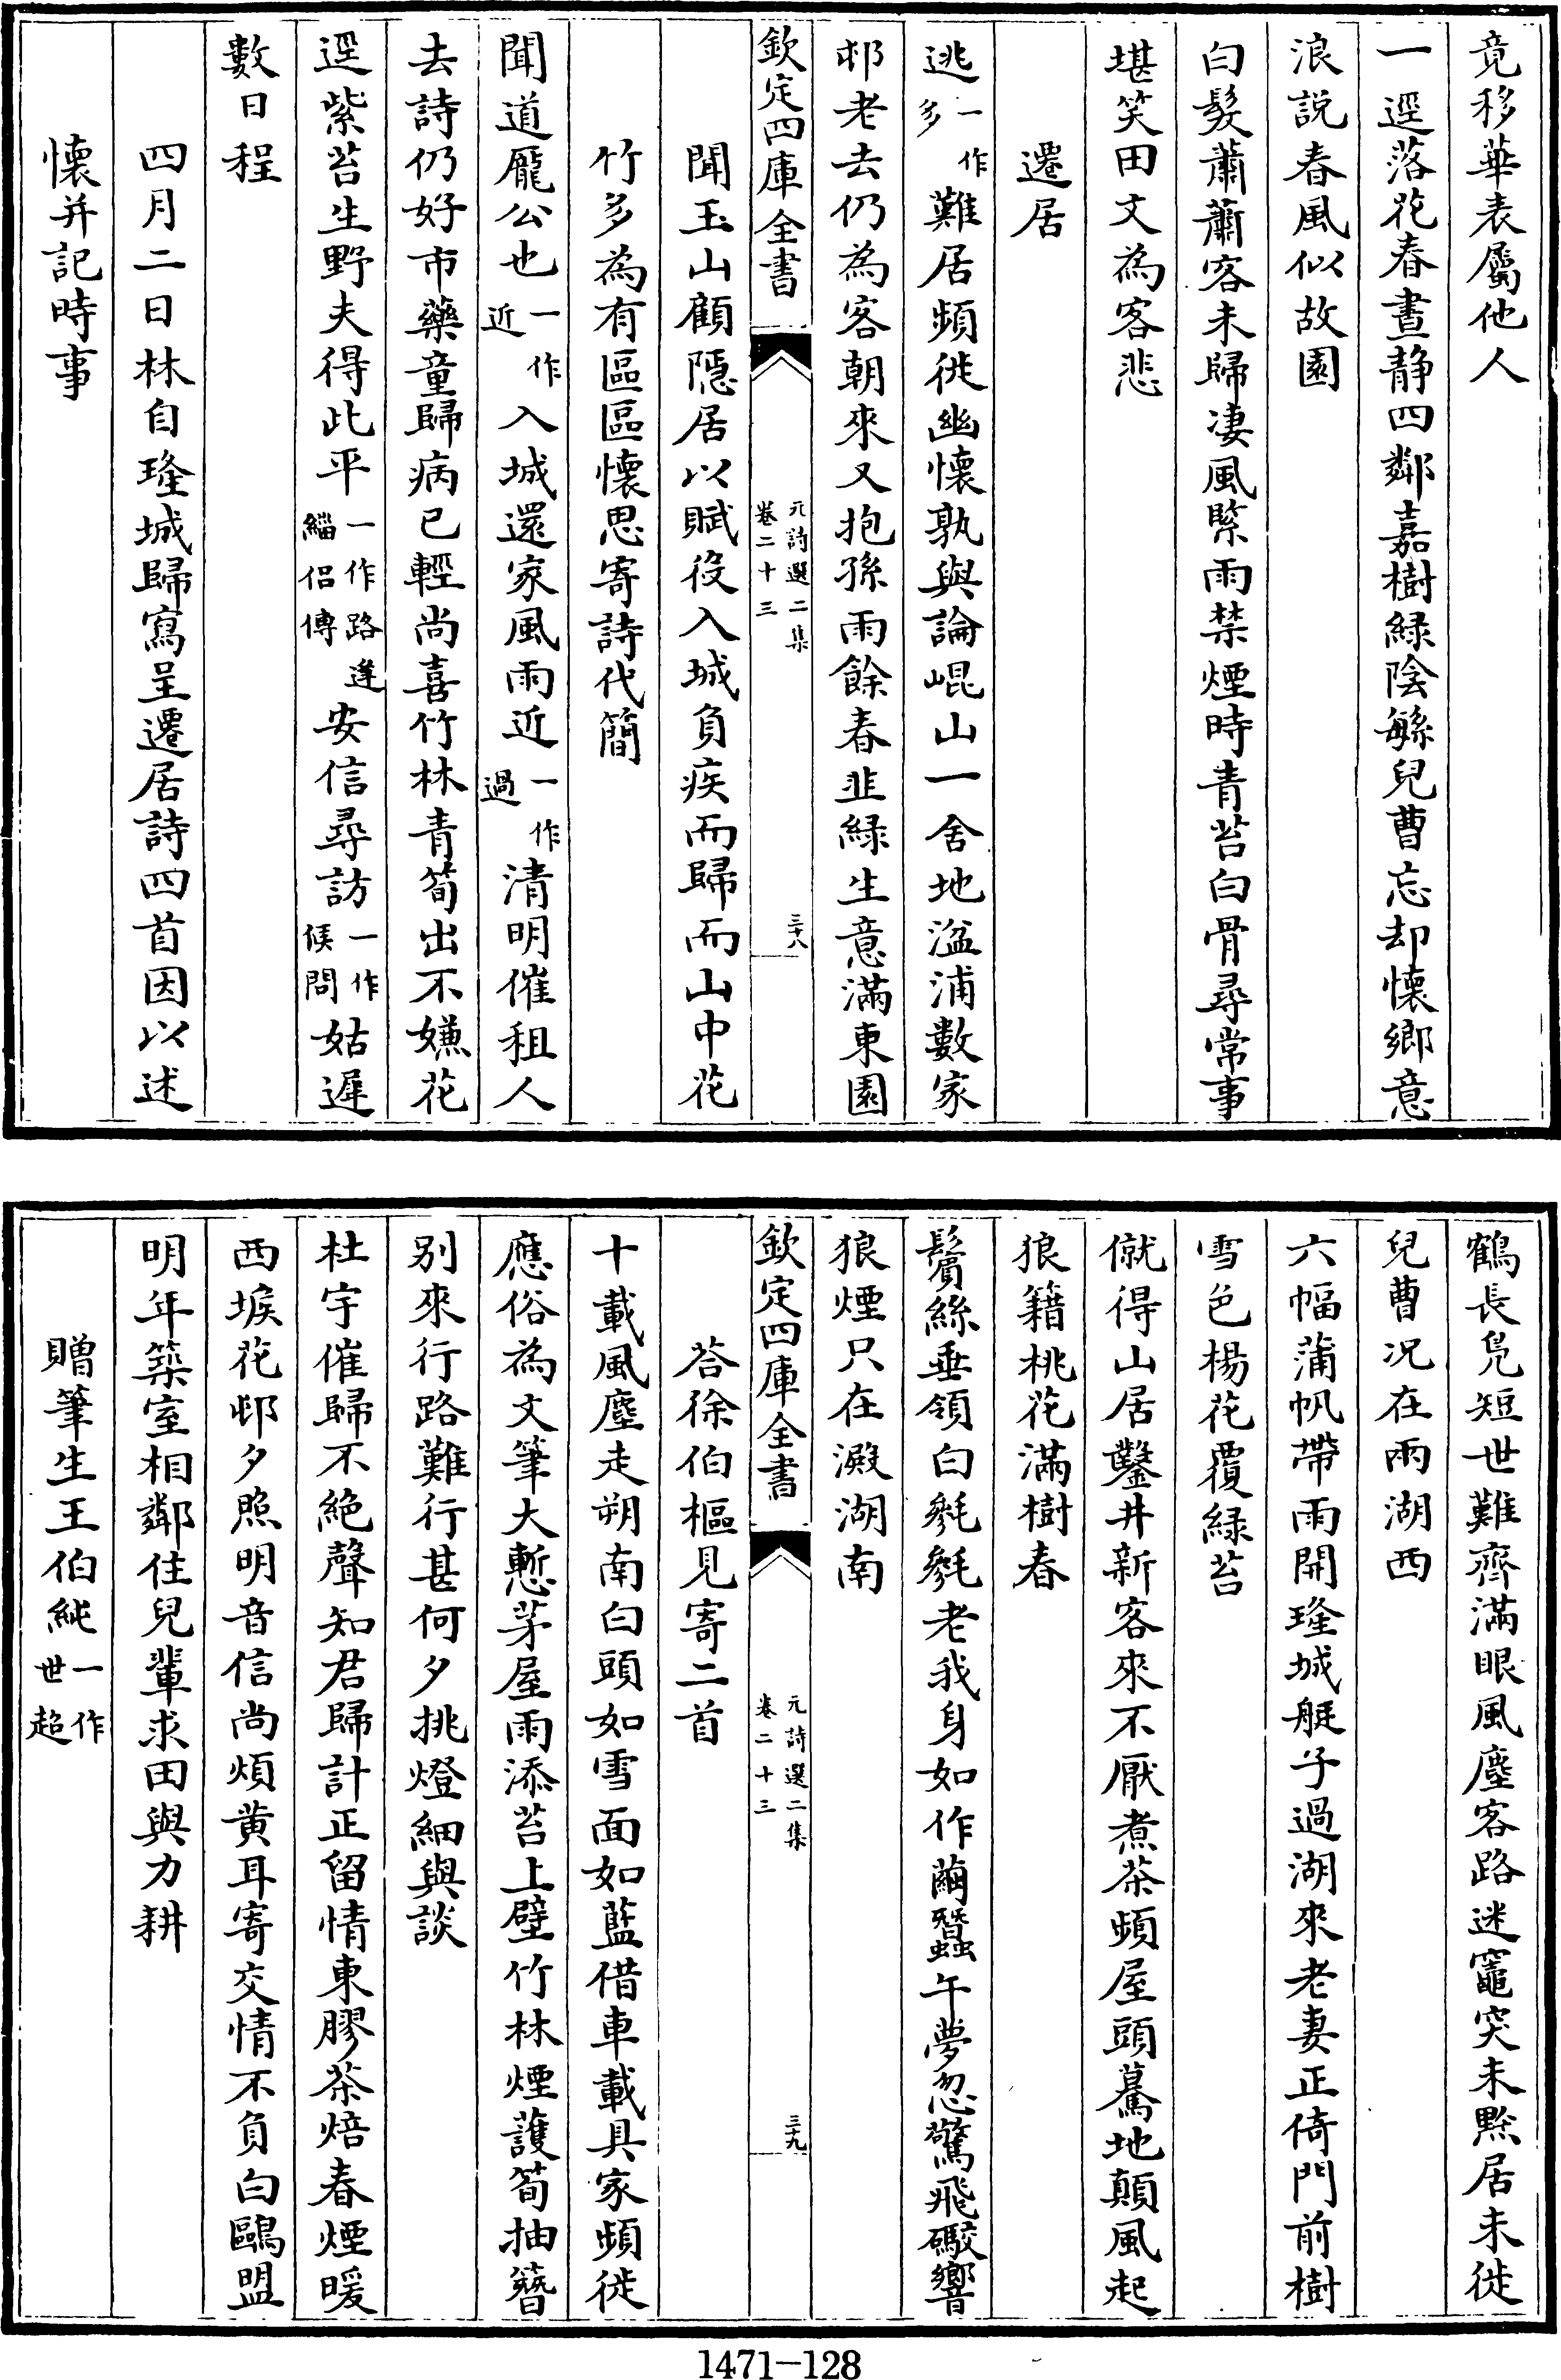 竟移華表屬他人
一逕落花春晝静四鄰嘉樹緑陰緐兒曹忘却懷鄉意
浪説春風似故園
白髮蕭蕭客未歸凄風緊雨禁煙時青苔白骨尋常事
堪笑田文為客悲
遷居
逃一作多難居頻徙幽懷孰與論崐山一舍地湓浦數家
邨老去仍為客朝來又抱孫雨餘春韭緑生意滿東園
欽定四庫全書
元詩選二集
卷二十三
三十八
聞玉山顧隱居以賦役入城負疾而歸而山中花
竹多為有區區懷思寄詩代簡
聞道龐公也一作近入城還家風雨近一作過清明催租人
去詩仍好市藥童歸病已輕尚喜竹林青筍出不嫌花
逕紫苔生野夫得此平一作路逢緇侣傳安信尋訪一作候問姑遲
數日程
四月二日林自㻱城歸寫呈遷居詩四首因以述
懷并記時事
鶴長凫短世難齊滿眼風塵客路迷竈突未黔居未徙
兒曹况在雨湖西
六幅蒲帆帶雨開㻱城艇子過湖來老妻正倚門前樹
雪色楊花覆緑苔
僦得山居鑿井新客來不厭煮茶頻屋頭驀地顛風起
狼籍桃花滿樹春
鬢絲垂領白毿毿老我身如作繭蠶午夢忽驚飛礮響
狼煙只在澱湖南
欽定四庫全書
元詩選二集
卷二十三
三十九
荅徐伯樞見寄二首
十載風塵走朔南白頭如雪面如藍借車載具家頻徙
應俗為文筆大慙茅屋雨添苔上壁竹林煙護筍抽簪
别來行路難行甚何夕挑燈細與談
杜宇催歸不絶聲知君歸計正留情東膠茶焙春煙暖
西堠花邨夕照明音信尚煩黄耳寄交情不負白鷗盟
明年築室相鄰住兒輩求田與力耕
贈筆生王伯純一作世超
1471-128